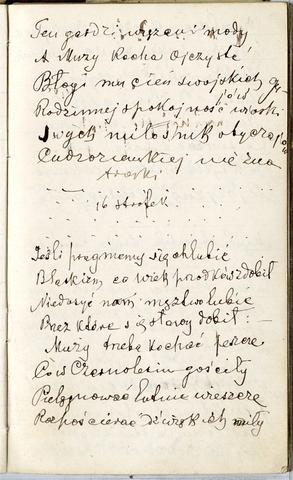 Ten gardzi wrzawą i mody
A Muzy Kocha Ojczyste
Błogi mu cień swojskich
Rodzinnej spokojność wioski
Swych miłośnik obyczajów
Cudzoziemskiej nie zna
troski
16 strofek
Jeśli pragniemy się chlubić
Blaskiem, co wiek przodków zdobił
Niedosyć nam męztwo lubić
Przez które się sławy dobił: —
Muzy trzeba kochać jeszcze
Co w Czarnolesiu gościły
Pielęgnować lutnie wieszcze
Rozpościerać dźwięk ich miły